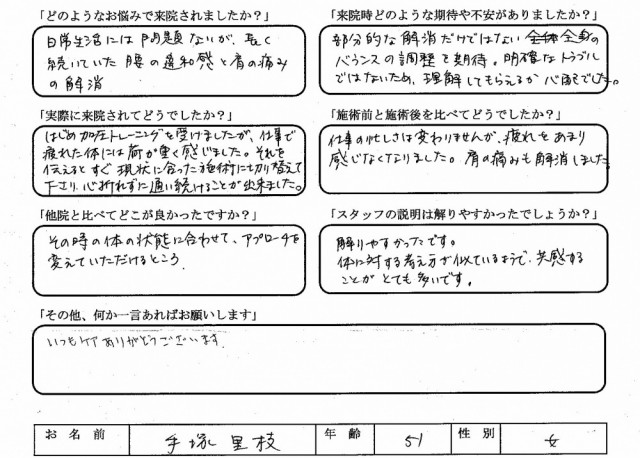 「どのようなお悩みで来院されましたか？」
日常生活には問題ないが、長く
続いていた腰の違和感と肩の痛み
の解消
「来院時どのような期待や不安がありましたか？」
部分的な解消だけではない全身の
バランスの調整を期待。明確なトラブル
ではないため、理解してもらえるか心配でした。
「実際に来院されてどうでしたか？」
はじめ加圧トレーニングを受けましたが、仕事で
疲れた体には荷が重く感じました。それを
伝えるとすぐ現状に合った施術に切り替えて
下さり、心折れずに通い続けることが出来ました。
「施術前と施術後を比べてどうでしたか？」
仕事の忙しさは変わりませんが、疲れをあまり
感じなくなりました。肩の痛みも解消しました。
「他院と比べてどこが良かったですか？」
その時の体の状態に合わせて、アプローチを
変えていただけるところ
「スタッフの説明は解りやすかったでしょうか？」
解りやすかったです。
体に対する考え方が似ているようで、共感する
ことがとても多いです。
「その他、何か一言あればお願いします」
いつもケアありがとうございます
お名前 手塚里枝 年齢 51 性別 女